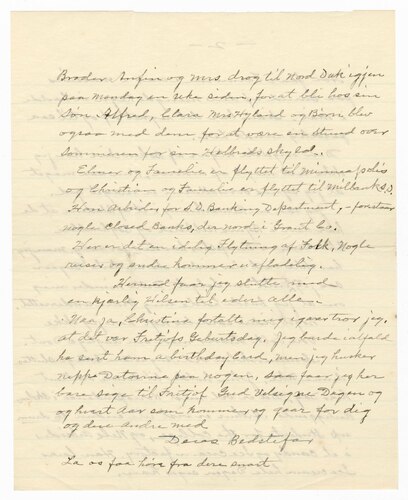 Broder Anfin og Mrs. drog til Nord Dak igjen
paa Monday en uke siden, for at bli hos sin
Søn Alfred, Clara Mrs Hyland og Børn blev
ogsaa med dem for at være en stund over
Sommeren for sin Helbreds skyld.
Elmer og Familie er flyttet til Minneapolis
og Christian og Familie er flyttet til Milbank S.D.
Han Arbeider for S.D. Banking Department, - forestaar
nogle Closed Banks, der nord i Grant Co.
Her er det en idelig Flytning af Folk, Nogle
reiser og andre kommer uafladelig.
Hermed faar jeg slutte med
en kjærlig Hilsen til eder alle.
Naa ja, Christina fortalte mig igaar tror jeg,
at det var Fritjofs Geburtsdag. Jeg burde ialfald
ha sent ham a birthday Card, men jeg husker
neppe Datoerne paa nogen, saa faar jeg her
bare sige til Fritjof Gud Velsigne Dagen og
og hvert Aar som kommer og gaar for dig
og dere andre med
Deres Bedstefar
La os faa høre fra dere snart